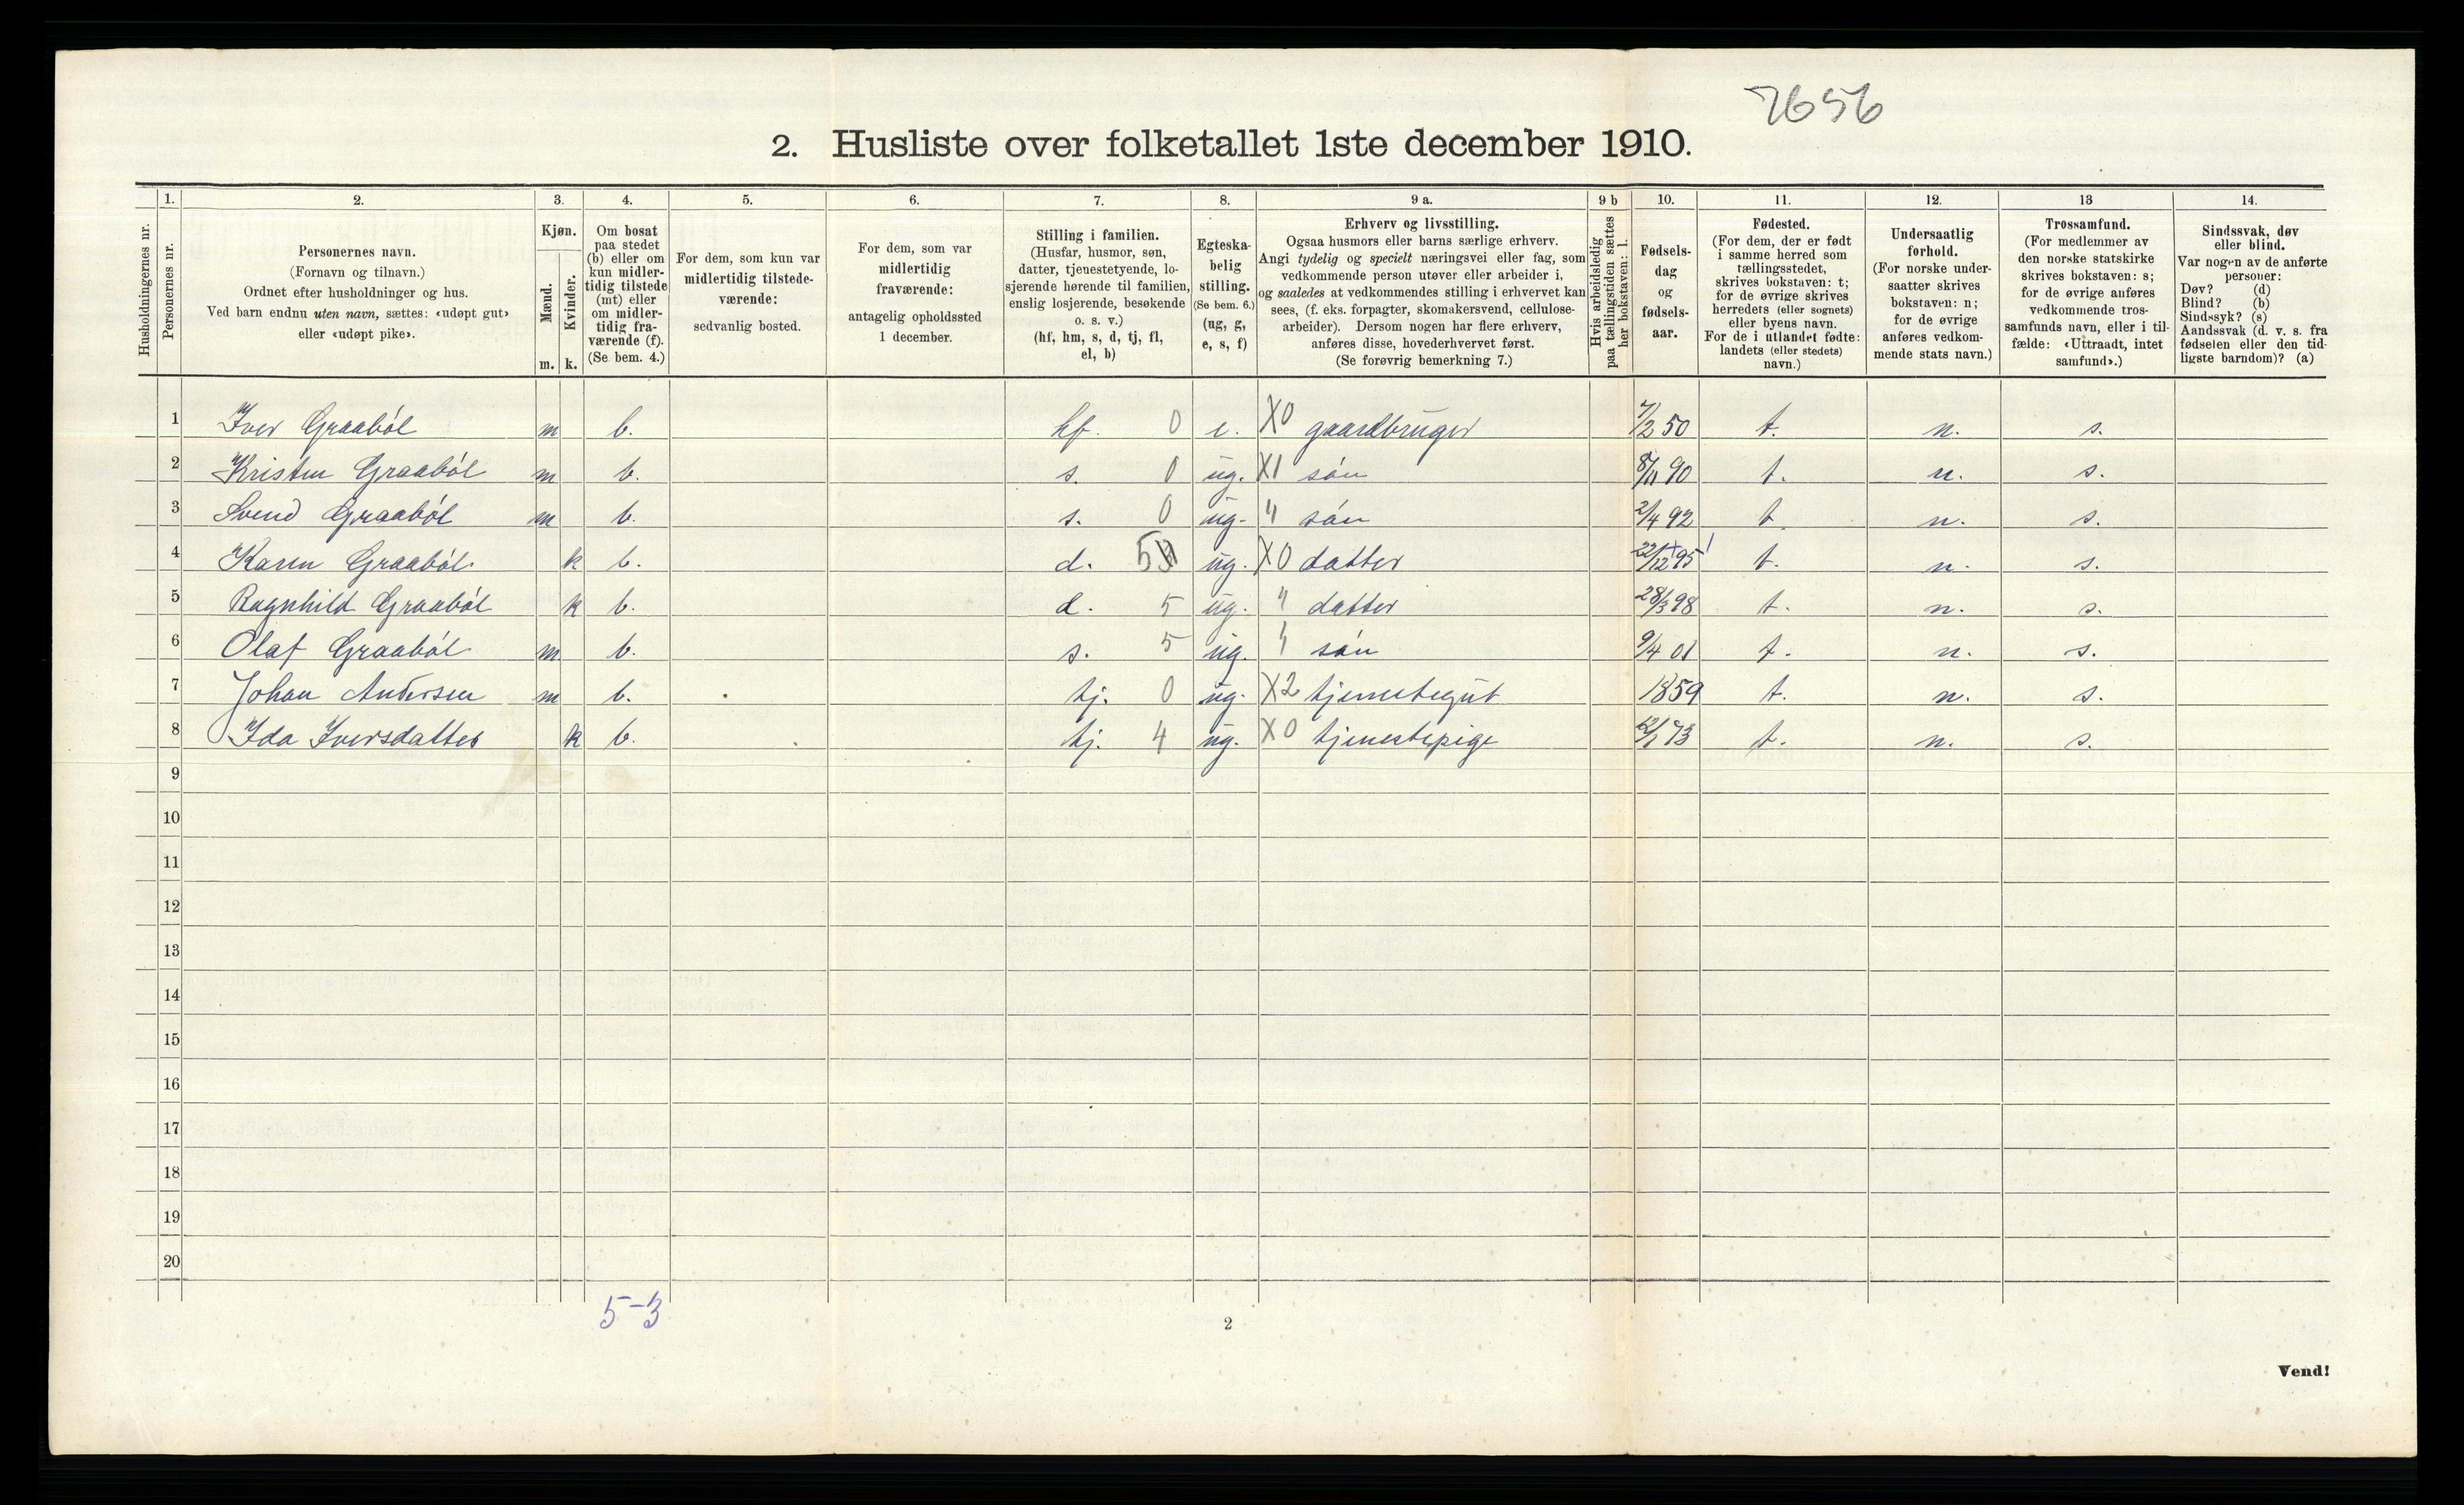 7656
2. Husliste over folketallet 1ste december 1910.
1. 2. 3. 4. 5. 6. 7. 8. 9 a. 9 b 10. 11. 12. 13 14.
Husholdningernes nr.
Personernes nr.
Personernes navn.
(Fornavn og tilnavn.)
Ordnet efter husholdninger og hus.
Ved barn endnu uten navn, sættes: «udøpt gut»
eller «udøpt pike».
Kjøn.
Mænd.
Kvinder.
m. k.
Om bosat
paa stedet
(b) eller om
kun midler-
tidig tilstede
(mt) eller
om midler-
tidig fra-
værende (f).
(Se bem. 4.)
For dem, som kun var
midlertidig tilstede-
værende:
sedvanlig bosted.
For dem, som var
midlertidig
fraværende:
antagelig opholdssted
1 december.
Stilling i familien.
(Husfar, husmor, søn,
datter, tjenestetyende, lo-
sjerende hørende til familien,
enslig losjerende, besøkende
o. s. v.)
(hf, hm, s, d, tj, fl,
el, b)
Egteska-
belig
stilling.
(Se bem. 6.)
(ug, g,
e, s, f)
Erhverv og livsstilling.
Ogsaa husmors eller barns særlige erhverv.
Angi tydelig og specielt næringsvei eller fag, som
vedkommende person utøver eller arbeider i,
og saaledes at vedkommendes stilling i erhvervet kan
sees, (f. eks. forpagter, skomakersvend, cellulose-
arbeider). Dersom nogen har flere erhverv,
anføres disse, hovederhvervet først.
(Se forøvrig bemerkning 7.)
Hvis arbeidsledig
paa tællingstiden sættes
her bokstaven: l.
Fødsels-
dag
og
fødsels-
aar.
Fødested.
(For dem, der er født
i samme herred som
tællingsstedet,
skrives bokstaven: t;
for de øvrige skrives
herredets (eller sognets)
eller byens navn.
For de i utlandet fødte:
landets (eller stedets)
navn.)
Undersaatlig
forhold.
(For norske under-
saatter skrives
bokstaven: n;
for de øvrige
anføres vedkom-
mende stats navn.)
Trossamfund.
(For medlemmer av
den norske statskirke
skrives bokstaven: s;
for de øvrige anføres
vedkommende tros-
samfunds navn, eller i til-
fælde: «Uttraadt, intet
samfund».)
Sindssvak, døv
eller blind.
Var nogen av de anførte
personer:
Døv? (d)
Blind? (b)
Sindssyk? (s)
Aandssvak (d. v. s. fra
fødselen eller den tid-
ligste barndom)? (a)
1 Iver Graaból m b. hf. 0 e. X0 gaardbruger 7/2 50 t. n. s.
2 Kristen Graaból m b. s. 0 ug. X1 són 8/11 90 t. n. s.
3 Svend Graaból m b. s. 0 ug. " són 2/4 92 t n. s.
4 Karen Graaból k b. d. 5 ug. X0 datter 22/12 95 t. n. s.
5 Ragnhild Graaból k b. d. 5 ug. " datter 28/3 98 t. n. s.
6 Olaf Graaból m b. s. 5 ug. " són 9/4 01 t. n. s.
7 Johan Andersen m b. tj. 0 ug. X2 tjenestegut 1859 t. n. s.
8 Ida Iversdatter k b. tj. 4 ug. X0 tjenestepige 12/1 73 t. n. s.
9
10
11
12
13
14
15
16
17
18
19
20
5-3
2
Vend!